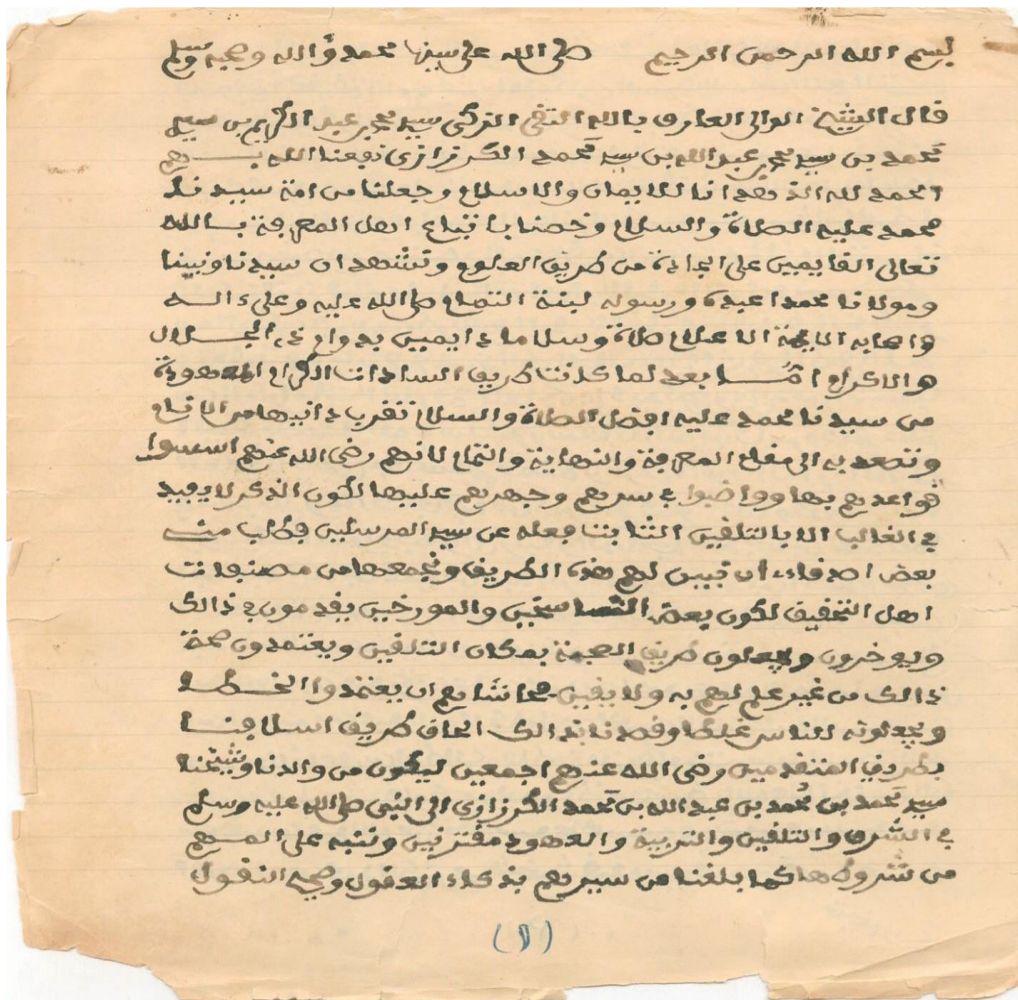 بسم الله الرحمن الرحيم صلى الله على سيدنا محمد وءاله وصحبه وسلم
قال الشيخ الوالي العارف بالله التقي الزكي سيد محمد بن عبد الكريم بن سيد
محمد بن سيد محمد بن عبد الله بن سيد محمد الكرزازي نفعنا الله بــهم
الحمد لله الذي هدانا للايمان والاسلام وجعلنا من امة سيدنا
محمد عليه الصلاة والسلام وخصنا باتباع اهل المعرفة بالله
تعالى القايمين على الجادة من طريق العلوم ونشهد ان سيدنا ونبينا
ومولانا محمدا عبده ورسوله لبنة التمام صلى الله عليه وعلىء اله
واصحابه الايمة الاعلام صلاة وسلاما دايمين بدوام ذي الجلال
والاكرام امــا بعد لما كانت طريق السادات الكرام المعهودة
من سيدنا محمد عليه افضل الصلاة والسلام تقرب دانيها من الاقدام
وتصعد به الى مقام المعرفة والنهاية والتمام لانهم رضي الله عنهم اسسوا
قواعدهم بها وواضبوا في سرهم وجهرهم عليها لكون الذكر لا يفيد
في الغالب الا بالتلقين الثابت فعله عن سيد المرسلين فطلب منــ
بعض اصدقاء ان نبين لهم هذه الطريق ونجمعها من مصنفات
اهل التحقيق لكون بعض الناسخين والمورخين يقدمون في ذالك
ويوخرون ويجعلون طريق الصحبة بمكان التلقين ويعتمدون صحة
ذالك من غير علم لهم به ولا يقين فحاشاهم ان يعتمدوا الخطــا
ويجعلونه للناس غلطا وقصدنا بذالك الحاق طريق اسلافنــا
بطريق المتقدمين رضي الله عنهم اجمعين ليكون من والدنا وشيخنا
سيد محمد بن محمد بن عبد الله بن محمد الكرزازي الى النبي صلى الله عليه وسلم
في الشرف والتلقين والتربية والعهود مفترقين وننبه على المــهم
من شروطها كما بلغنا من سيرهم بذكاء العقول وصحيح النقول
(1)